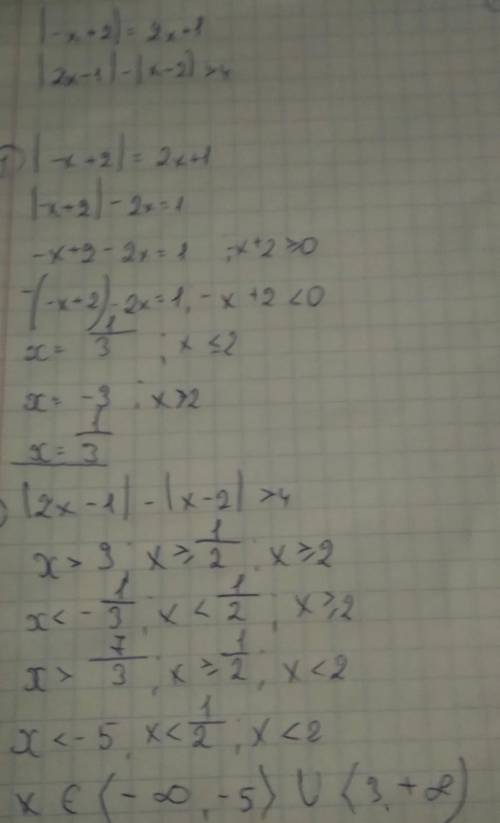 |-x+2| = 2x+1
|2x-1| - |x-2| > 4
1) |-x+2| = 2x+1
|-x+2| - 2x = 1
-x+2-2x=1 ; -x+2≥0
-(-x+2)-2x=1, -x+2<0
x = 1/3 ; x ≤ 2
x = -3 ; x>2
x = 1/3
) |2x-1| - |x-2| >4
x > 3; x ≥ 1/2; x ≥ 2
x < -1/3; x < 1/2; x ≥ 2
x > 7/3; x ≥ 1/2; x < 2
x < -5; x < 1/2; x < 2
x ∈ (-∞, -5) ∪ (3, +∞)